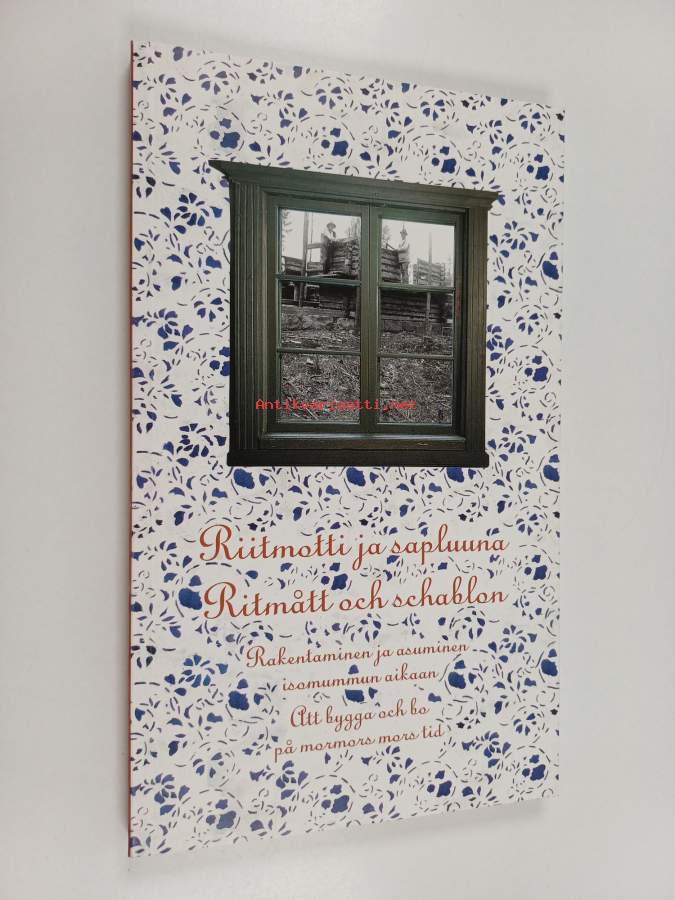 Antikvariaatti.net
Riitmotti ja sapluuna
Ritmått och schablon
Rakentaminen ja asuminen
isomummun aikaan
Att bygga och bo
på mormors mors tid